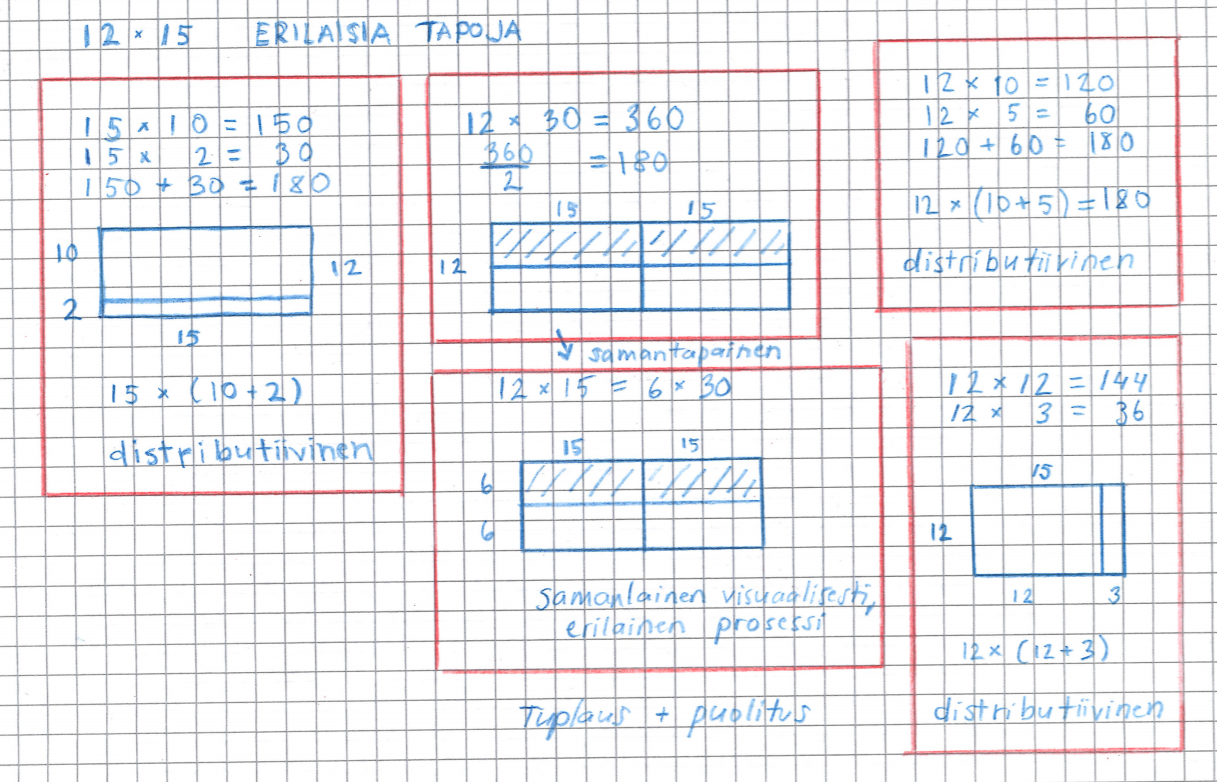 12 × 15 ERILAISIA TAPOJA
15 × 10 = 150
15 × 2 = 30
150 + 30 = 180
10
12
2
15
15 × (10+2)
distributiivinen
12 × 30 = 360
360
= 180
2
15 15
12
samantapainen
12 × 15 = 6 × 30
15 15
6
6
samanlainen visuaalisesti,
erilainen prosessi
Tuplaus + puolitus
12 × 10 = 120
12 × 5 = 60
120 + 60 = 180
12 × (10+5) = 180
distributiivinen
12 × 12 = 144
12 × 3 = 36
15
12
12 3
12 × (12+3)
distributiivinen